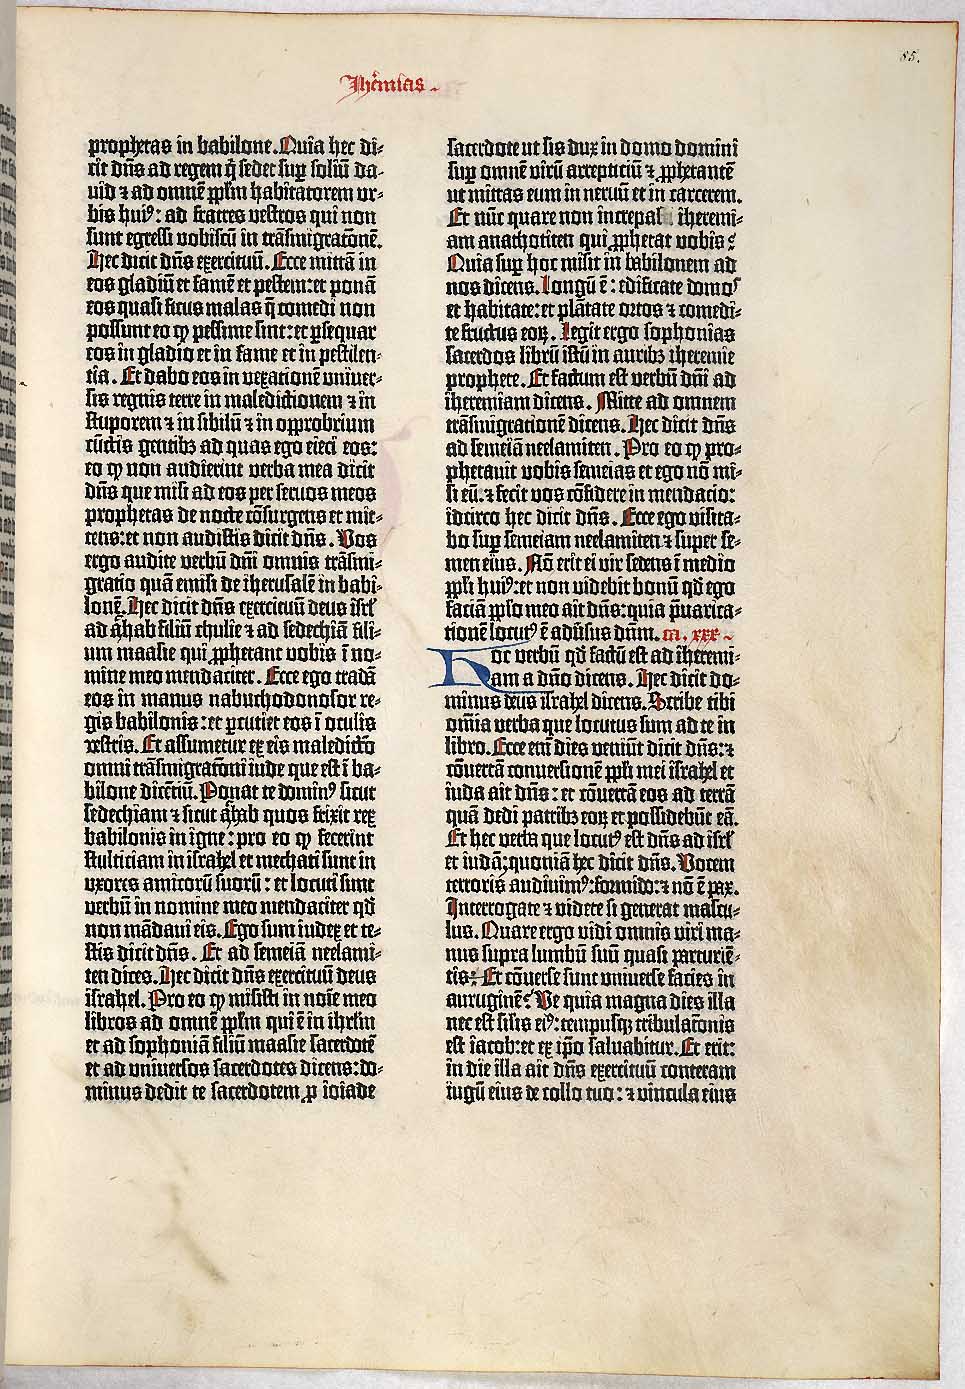 85.
Jheremias
prophetas in babilone. Quia hec di-
cit dñs ad regem q̃ sedet sup̱ soliũ da-
uid ⁊ ad omnẽ pplm̃ habitatorem vr-
bis huiꝰ: ad fratres vestros qui non
sunt egressi vobiscũ in trãsmigratõnẽ.
Hec dicit dñs exercituũ. Ecce mittã in
eos gladiũ et famẽ et pestem: et ponã
eos quasi ficus malas q̃ comedi non
possunt eo ꝙ pessime sint: et ꝑsequar
eos in gladio et in fame et in pestilen-
tia. Et dabo eos in vexationẽ vniuer-
sis regnis terre in maledictionem ⁊ in
stuporem ⁊ in sibilũ ⁊ in opprobrium
cũctis gentibꝫ ad quas ego eieci eos:
eo ꝙ non audierint verba mea dicit
dñs que misi ad eos per seruos meos
prophetas de nocte cõsurgens et mit-
tens: et non audistis dicit dñs. Vos
ergo audite verbũ dñi omnis trãsmi-
gratio quã emisi de iherusalẽ in babi-
lonẽ. Hec dicit dñs exercituũ deus isrl̃
ad achab filiũ chulie ⁊ ad sedechiã fili-
um maasie qui ꝓphetant vobis ĩ no-
mine meo mendaciter. Ecce ego tradã
eos in manus nabuchodonosor re-
gis babilonis: et ꝑcutiet eos ĩ oculis
vestris. Et assumetur ex eis maledictõ
omni trãsmigratõni iude que est ĩ ba-
bilone dicẽtiũ. Ponat te dominꝰ sicut
sedechiam ⁊ sicut achab quos frixit rex
babilonis in igne: pro eo ꝙ fecerint
stulticiam in israhel et mechati sunt in
vxores amicorũ suorũ: et locuti sunt
verbũ in nomine meo mendaciter qđ
non mãdaui eis. Ego sum iudex et te-
stis dicit dñs. Et ad semeiã neelami-
ten dices. Hec dicit dñs exercituũ deus
israhel. Pro eo ꝙ misisti in noĩe meo
libros ad omnẽ pplm̃ qui ẽ in ihrl̃m
et ad sophoniã filiũ maasie sacerdotẽ
et ad vniuersos sacerdotes dicens: do-
minus dedit te sacerdotem ꝓ ioiade
sacerdote ut sis dux in domo domini
sup̱ omnẽ virũ arrepticiũ ⁊ ꝓphetantẽ
ut mittas eum in neruũ et in carcerem.
Et nũc quare non increpas iheremi-
am anathotiten qui ꝓphetat vobis?
Quia sup̱ hoc misit in babilonem ad
nos dicens. Longũ ẽ: edificate domos
et habitate: et plãtate ortos ⁊ comedi-
te fructus eoꝝ. Legit ergo sophonias
sacerdos librũ istũ in auribꝫ iheremie
prophete. Et factum est verbũ dñi ad
iheremiam dicens. Mitte ad omnem
trãsmigrationẽ dicens. Hec dicit dñs
ad semeiã neelamiten. Pro eo ꝙ pro-
phetauit vobis semeias et ego nõ mi-
si eũ. ⁊ fecit vos cõfidere in mendacio:
idcirco hec dicit dñs. Ecce ego visita-
bo sup̱ semeiam neelamiten ⁊ super se-
men eius. Nõ erit ei vir sedens ĩ medio
ppli huiꝰ: et non videbit bonũ qđ ego
faciã pplo meo ait dñs: quia p̃uarica-
tionẽ locutꝰ ẽ aduersus dñm. ca. xxx.
Hoc verbũ qđ factũ est ad iheremi-
am a dño dicens. Hec dicit do-
minus deus israhel dicens. Scribe tibi
om̃ia verba que locutus sum ad te in
libro. Ecce em̃ dies veniũt dicit dñs: ⁊
cõuertã conuersionẽ ppli mei israhel et
iuda ait dñs: et cõuertã eos ad terrã
quã dedi patribꝫ eoꝝ et possidebũt eã.
Et hec verba que locutꝰ est dñs ad isrl̃
et iudã: quoniã hec dicit dñs. Vocem
terroris audiuimꝰ: formido: ⁊ nõ ẽ pax.
Interrogate ⁊ videte si generat mascu-
lus. Quare ergo vidi omnis viri ma-
nus supra lumbũ suũ quasi parturiẽ-
tis: Et cõuerse sunt vniuerse facies in
auruginẽ? Ve quia magna dies illa
nec est silis eiꝰ: tempusqꝫ tribulatõnis
est iacob: et ex ip̃o saluabitur. Et erit:
in die illa ait dñs exercituũ conteram
iugũ eius de collo tuo: ⁊ vincula eius